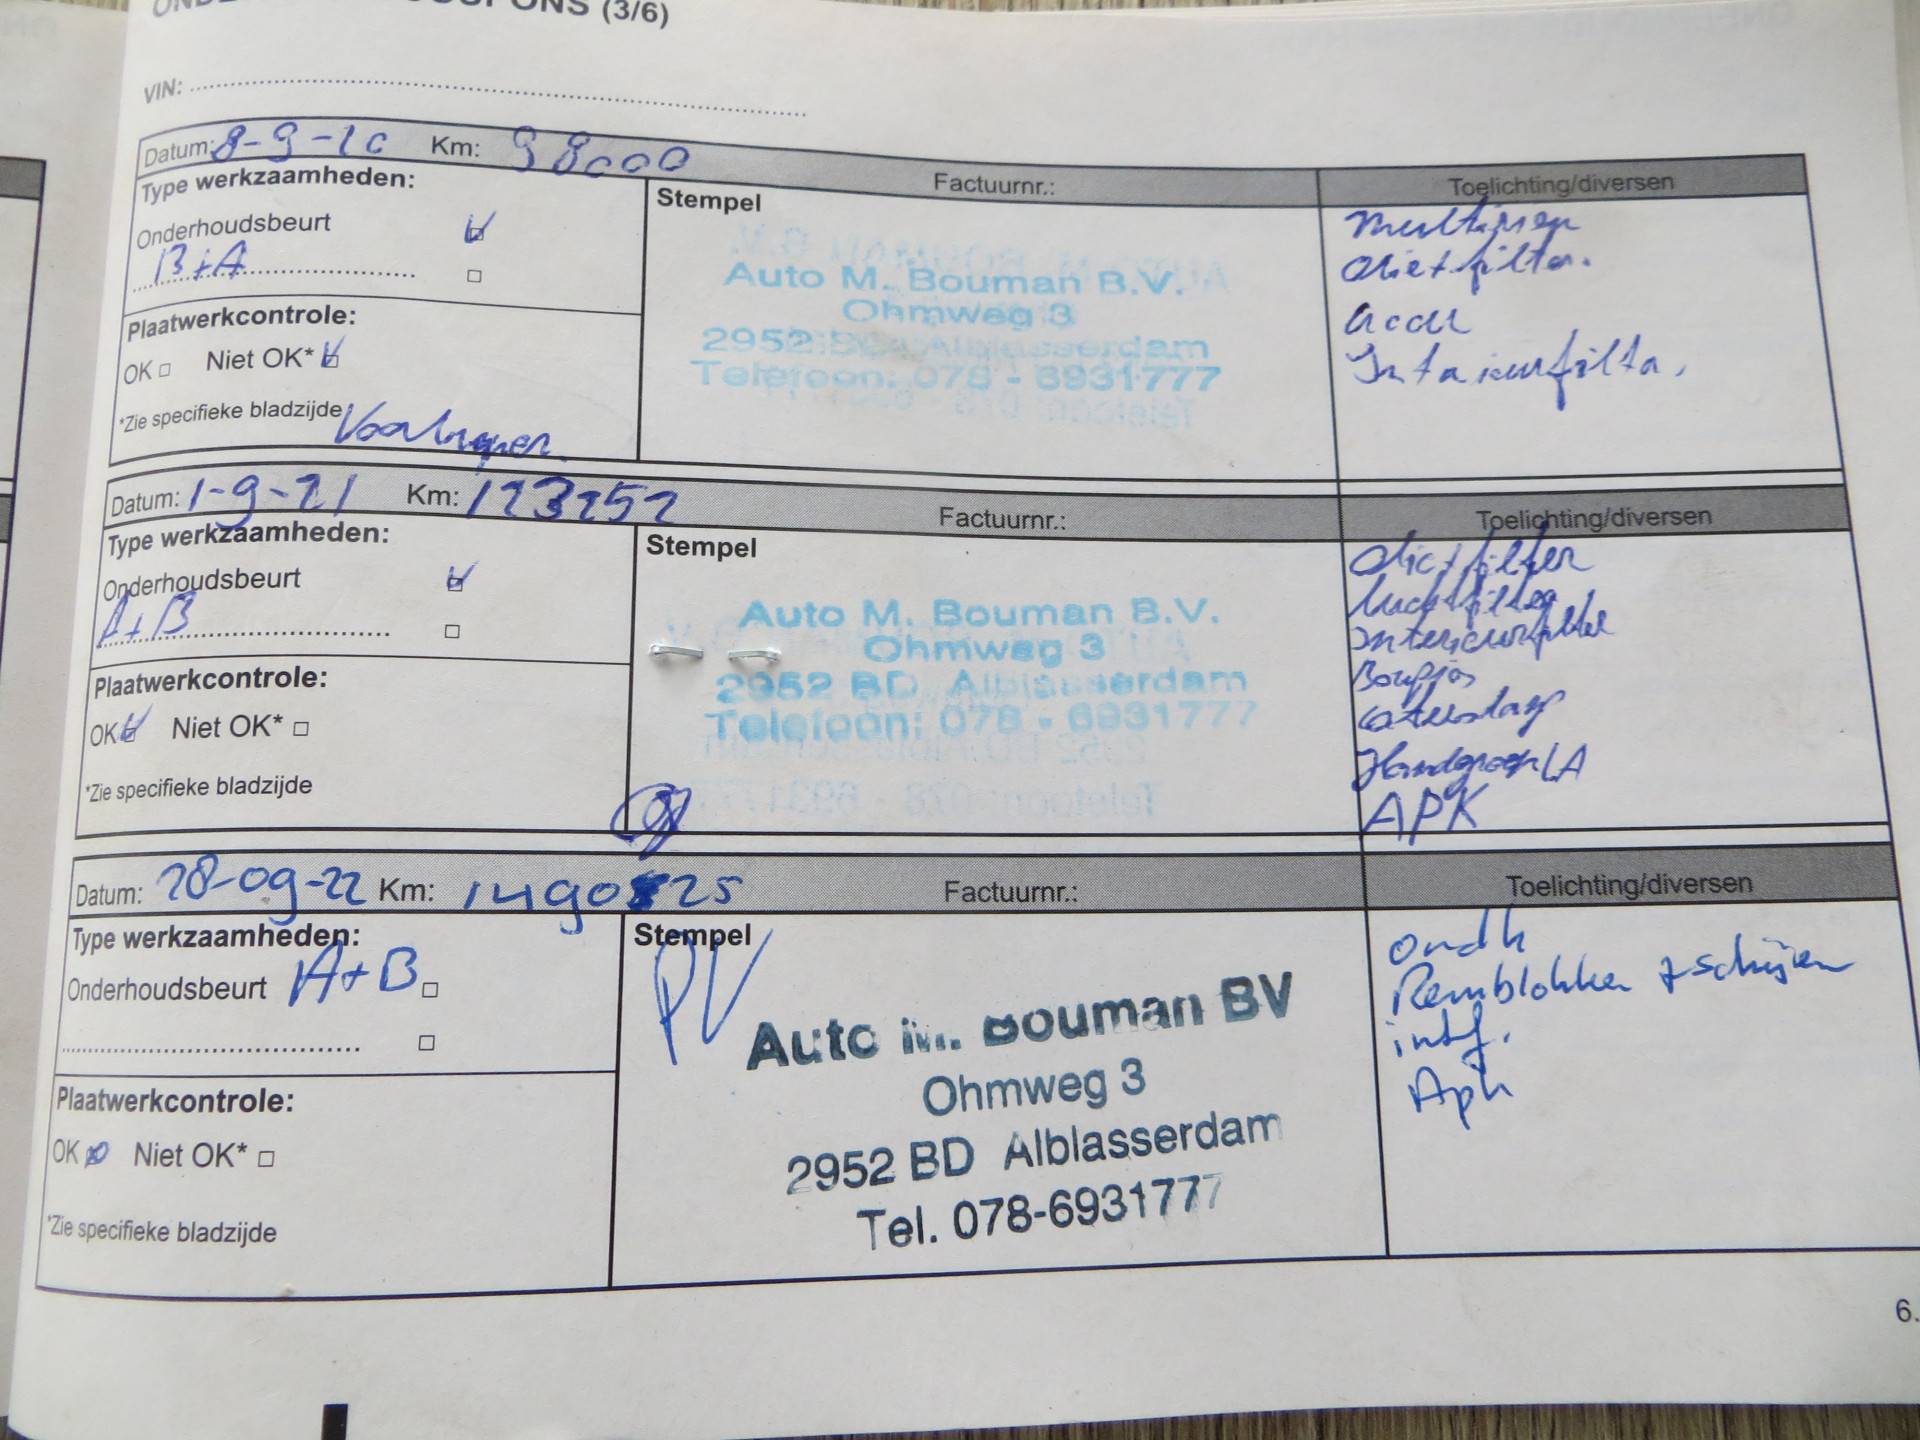 COUPONS (3/6)
VIN:
Datum: 8-9-20 Km: 98000 Factuurnr.: Toelichting/diversen
Type werkzaamheden:
Onderhoudsbeurt
B+A
Plaatwerkcontrole:
OK Niet OK*
*Zie specifieke bladzijde
Stempel
Auto M. Bouman B.V.
Ohmweg 3
2952 BD Alblasserdam
Telefoon: 078 - 6931777
multiriem
olie+filter.
accu
Interieurfilter.
Datum: 1-9-21 Km: 123252 Factuurnr.: Toelichting/diversen
Type werkzaamheden:
Onderhoudsbeurt
A+B
Plaatwerkcontrole:
OK Niet OK*
*Zie specifieke bladzijde
Stempel
Auto M. Bouman B.V.
Ohmweg 3
2952 BD Alblasserdam
Telefoon: 078 - 6931777
olie+filter
luchtfilter
interieurfilter
Bougies
APK
Datum: 28-09-22 Km: Factuurnr.: Toelichting/diversen
Type werkzaamheden:
Onderhoudsbeurt A+B
Plaatwerkcontrole:
OK Niet OK*
*Zie specifieke bladzijde
Stempel
PV
Auto M. Bouman BV
Ohmweg 3
2952 BD Alblasserdam
Tel. 078-6931777
ondh
Remblokken + schijven
intf.
Apk
6.